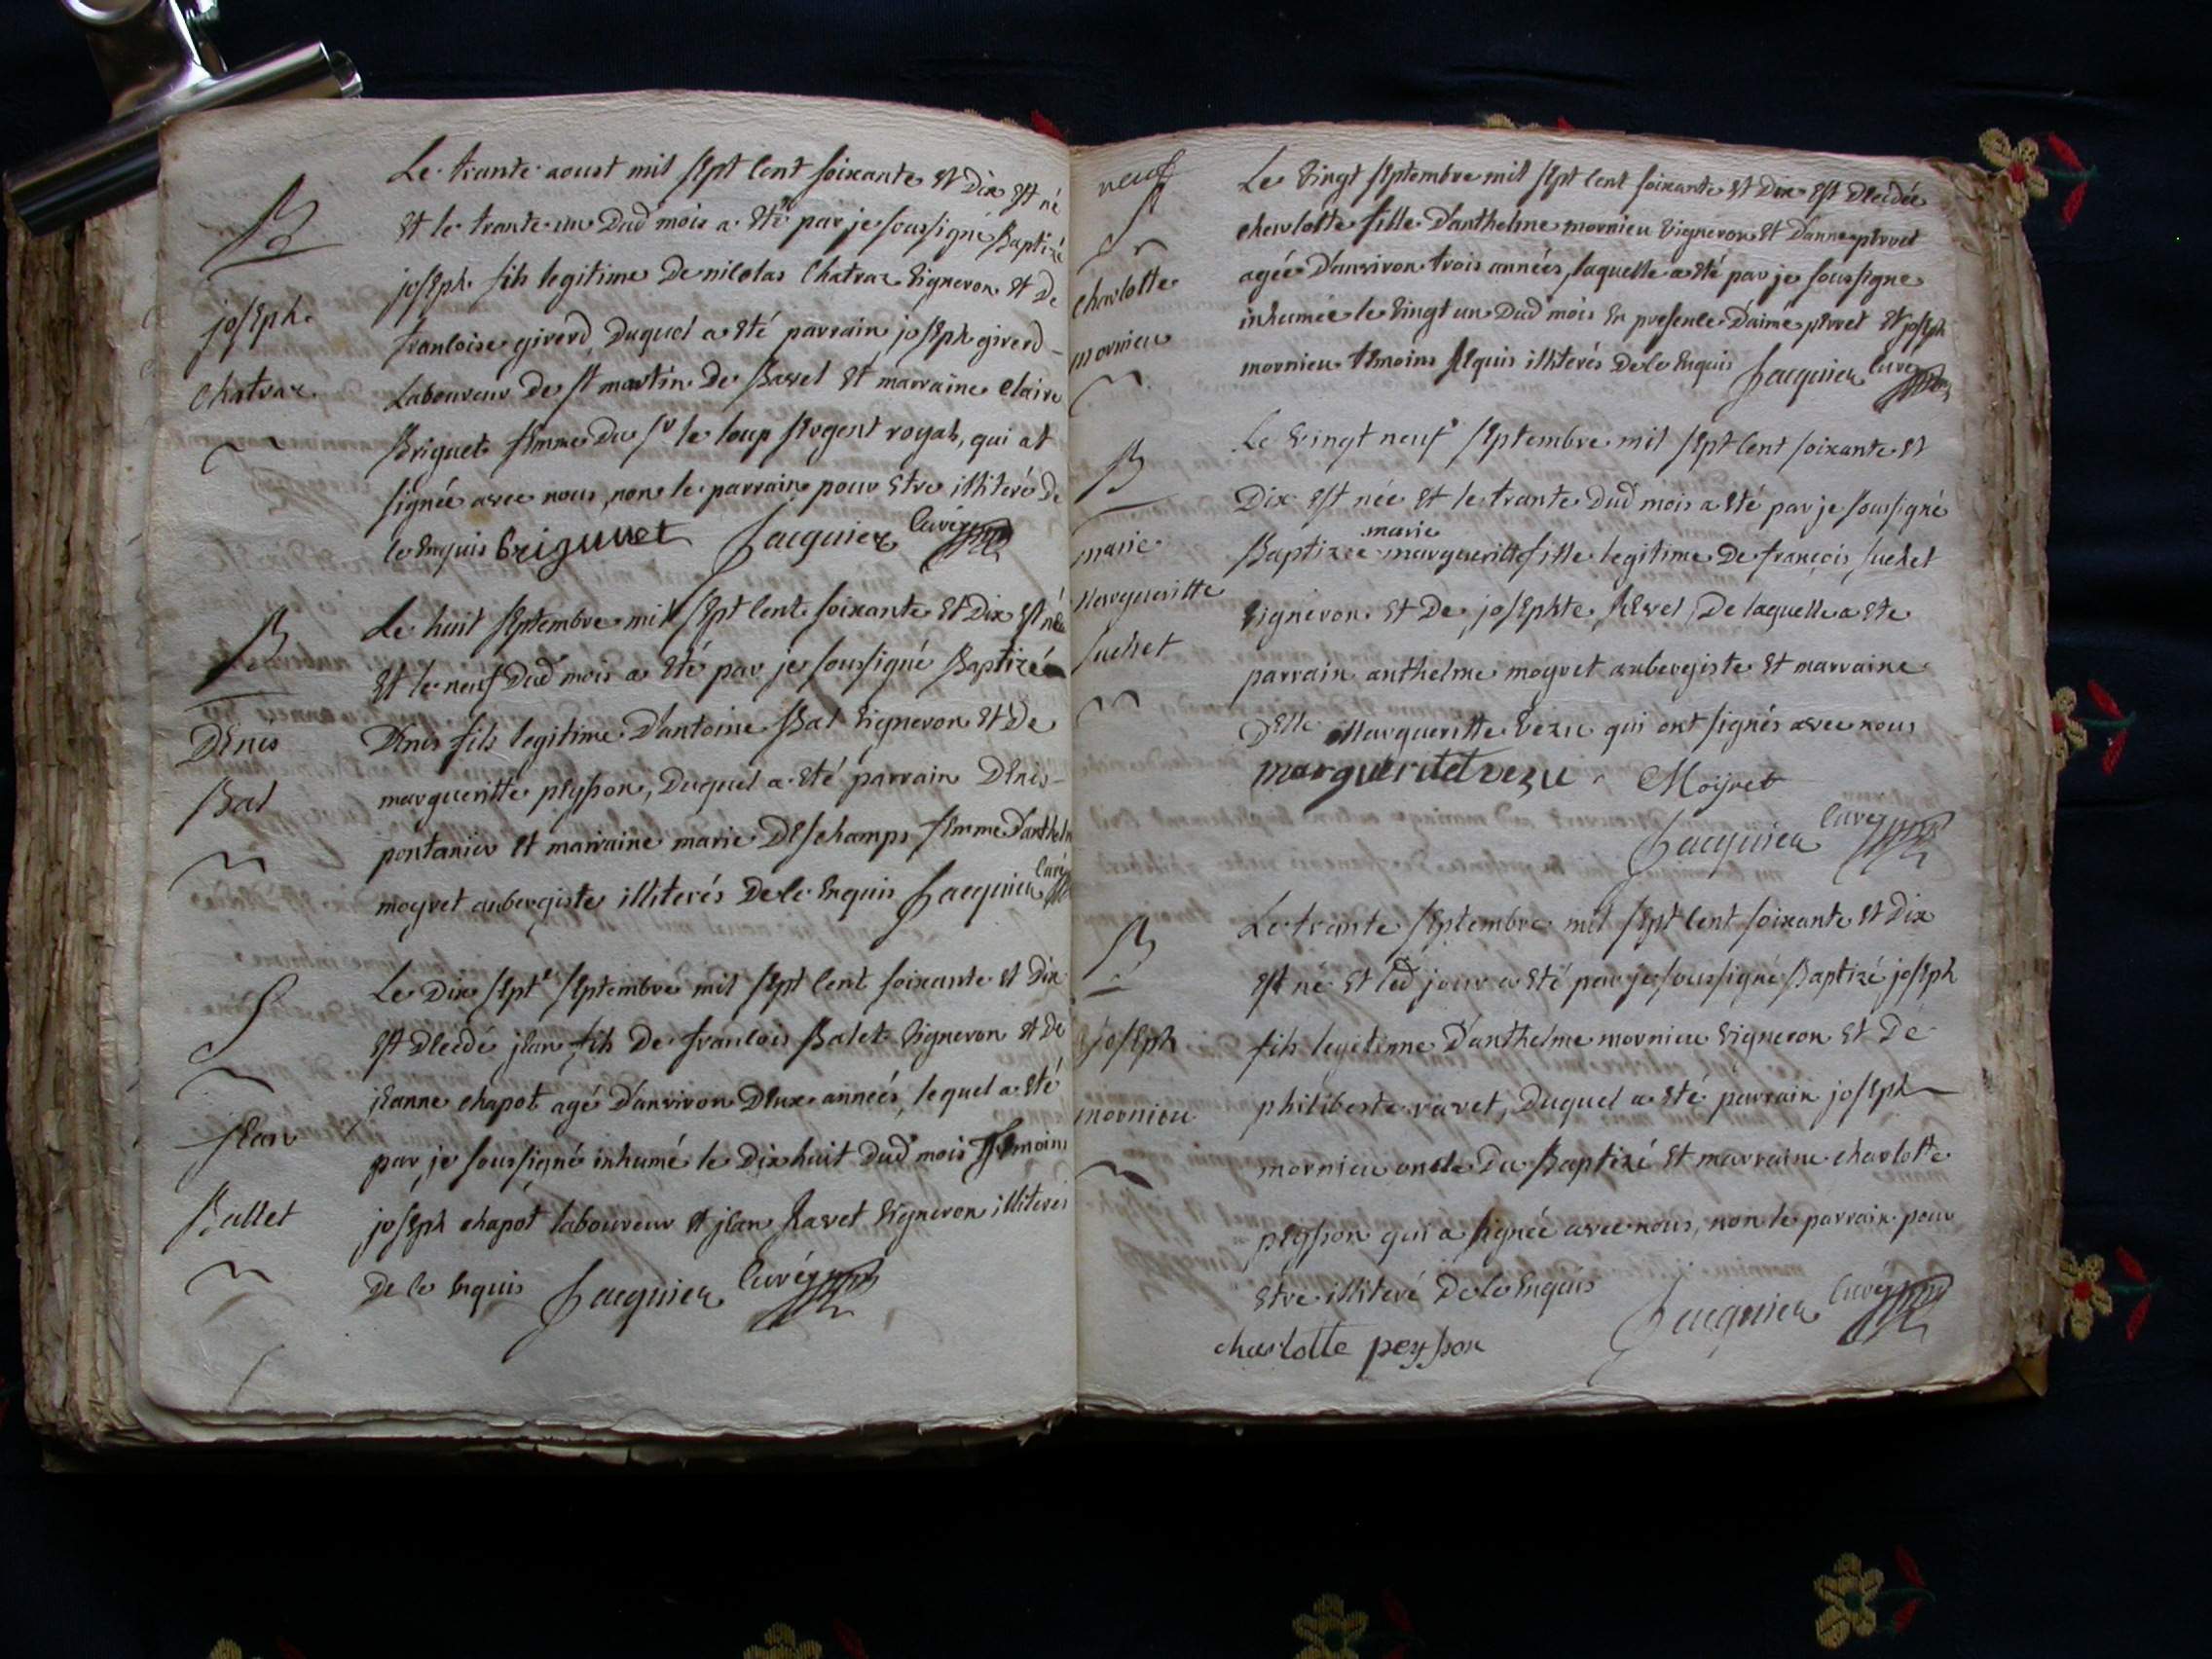 Le trante aoust mil sept cent soixante et dix est né
B
et le trante un dud mois a eté par je soussigné Baptizé
joseph
joseph fils legitime de nicolas Chatraz vigneron et de
Chatraz
francoise girerd, duquel a eté parrain joseph girerd
Laboureur de st martin de Bavel et marraine Claire
Briguet femme du sr le loup sergent royal, qui at
signée avec nous, non le parrain pour etre illiteré de
ce enquis briguuet Jacquier curé
B
Le huit septembre mil sept cent soixante et dix est né
et le neuf dud mois a eté par je soussigné Baptizé
Denis
Denis fils legitime d'antoine Bal vigneron et de
Bal
margueritte peysson, duquel a eté parrain Denis
pontanier et marraine marie Deschamps femme d'anthelm
moyret aubergiste illiterés de ce enquis Jacquier Curé
S
Le dix sept septembre mil sept cent soixante et dix
est decedé jean fils de francois Balet vigneron et de
jeanne chapot agé d'anviron deux années, lequel a eté
jean
par je soussigné inhumé le dix huit dud mois temoins
Ballet
joseph chapot laboureur et jean Ravet vigneron illiterés
de ce enquis Jacquier Curé
neuf
S
Le vingt septembre mil sept cent soixante et dix est decedée
charlotte fille d'anthelme mornieu vigneron et d'anne perret
charlotte
agée d'anviron trois années, laquelle a eté par je soussigné
mornieu
inhumée le vingt un dud mois en presence d'aimé perret et joseph
mornieu temoins requis illiterés de ce enquis Jacquier Curé
B
Le vingt neuf septembre mil sept cent soixante et
dix est née et le trante dud mois a eté par je soussigné
marie
marie
Baptizée margueritte fille legitime de françois suchet
Margueritte
vigneron et de josephte Revel, de laquelle a ete
suchet
parrain anthelme moyret aubergiste et marraine
Delle Margueritte vezu qui ont signés avec nous
margueritet vezu Moÿret
Jacquier Curé
B
Le trante septembre mil sept cent soixante et dix
est né et led jour a eté par je soussigné Baptizé joseph
joseph
fils legitime d'anthelme mornieu vigneron et de
mornieu
philiberte ravet, duquel a eté parrain joseph
mornieu oncle du Baptizé et marraine charlotte
peysson qui a signée avec nous, non le parrain pour
etre illiteré de ce enquis
Jacquier Curé
charlotte peysson